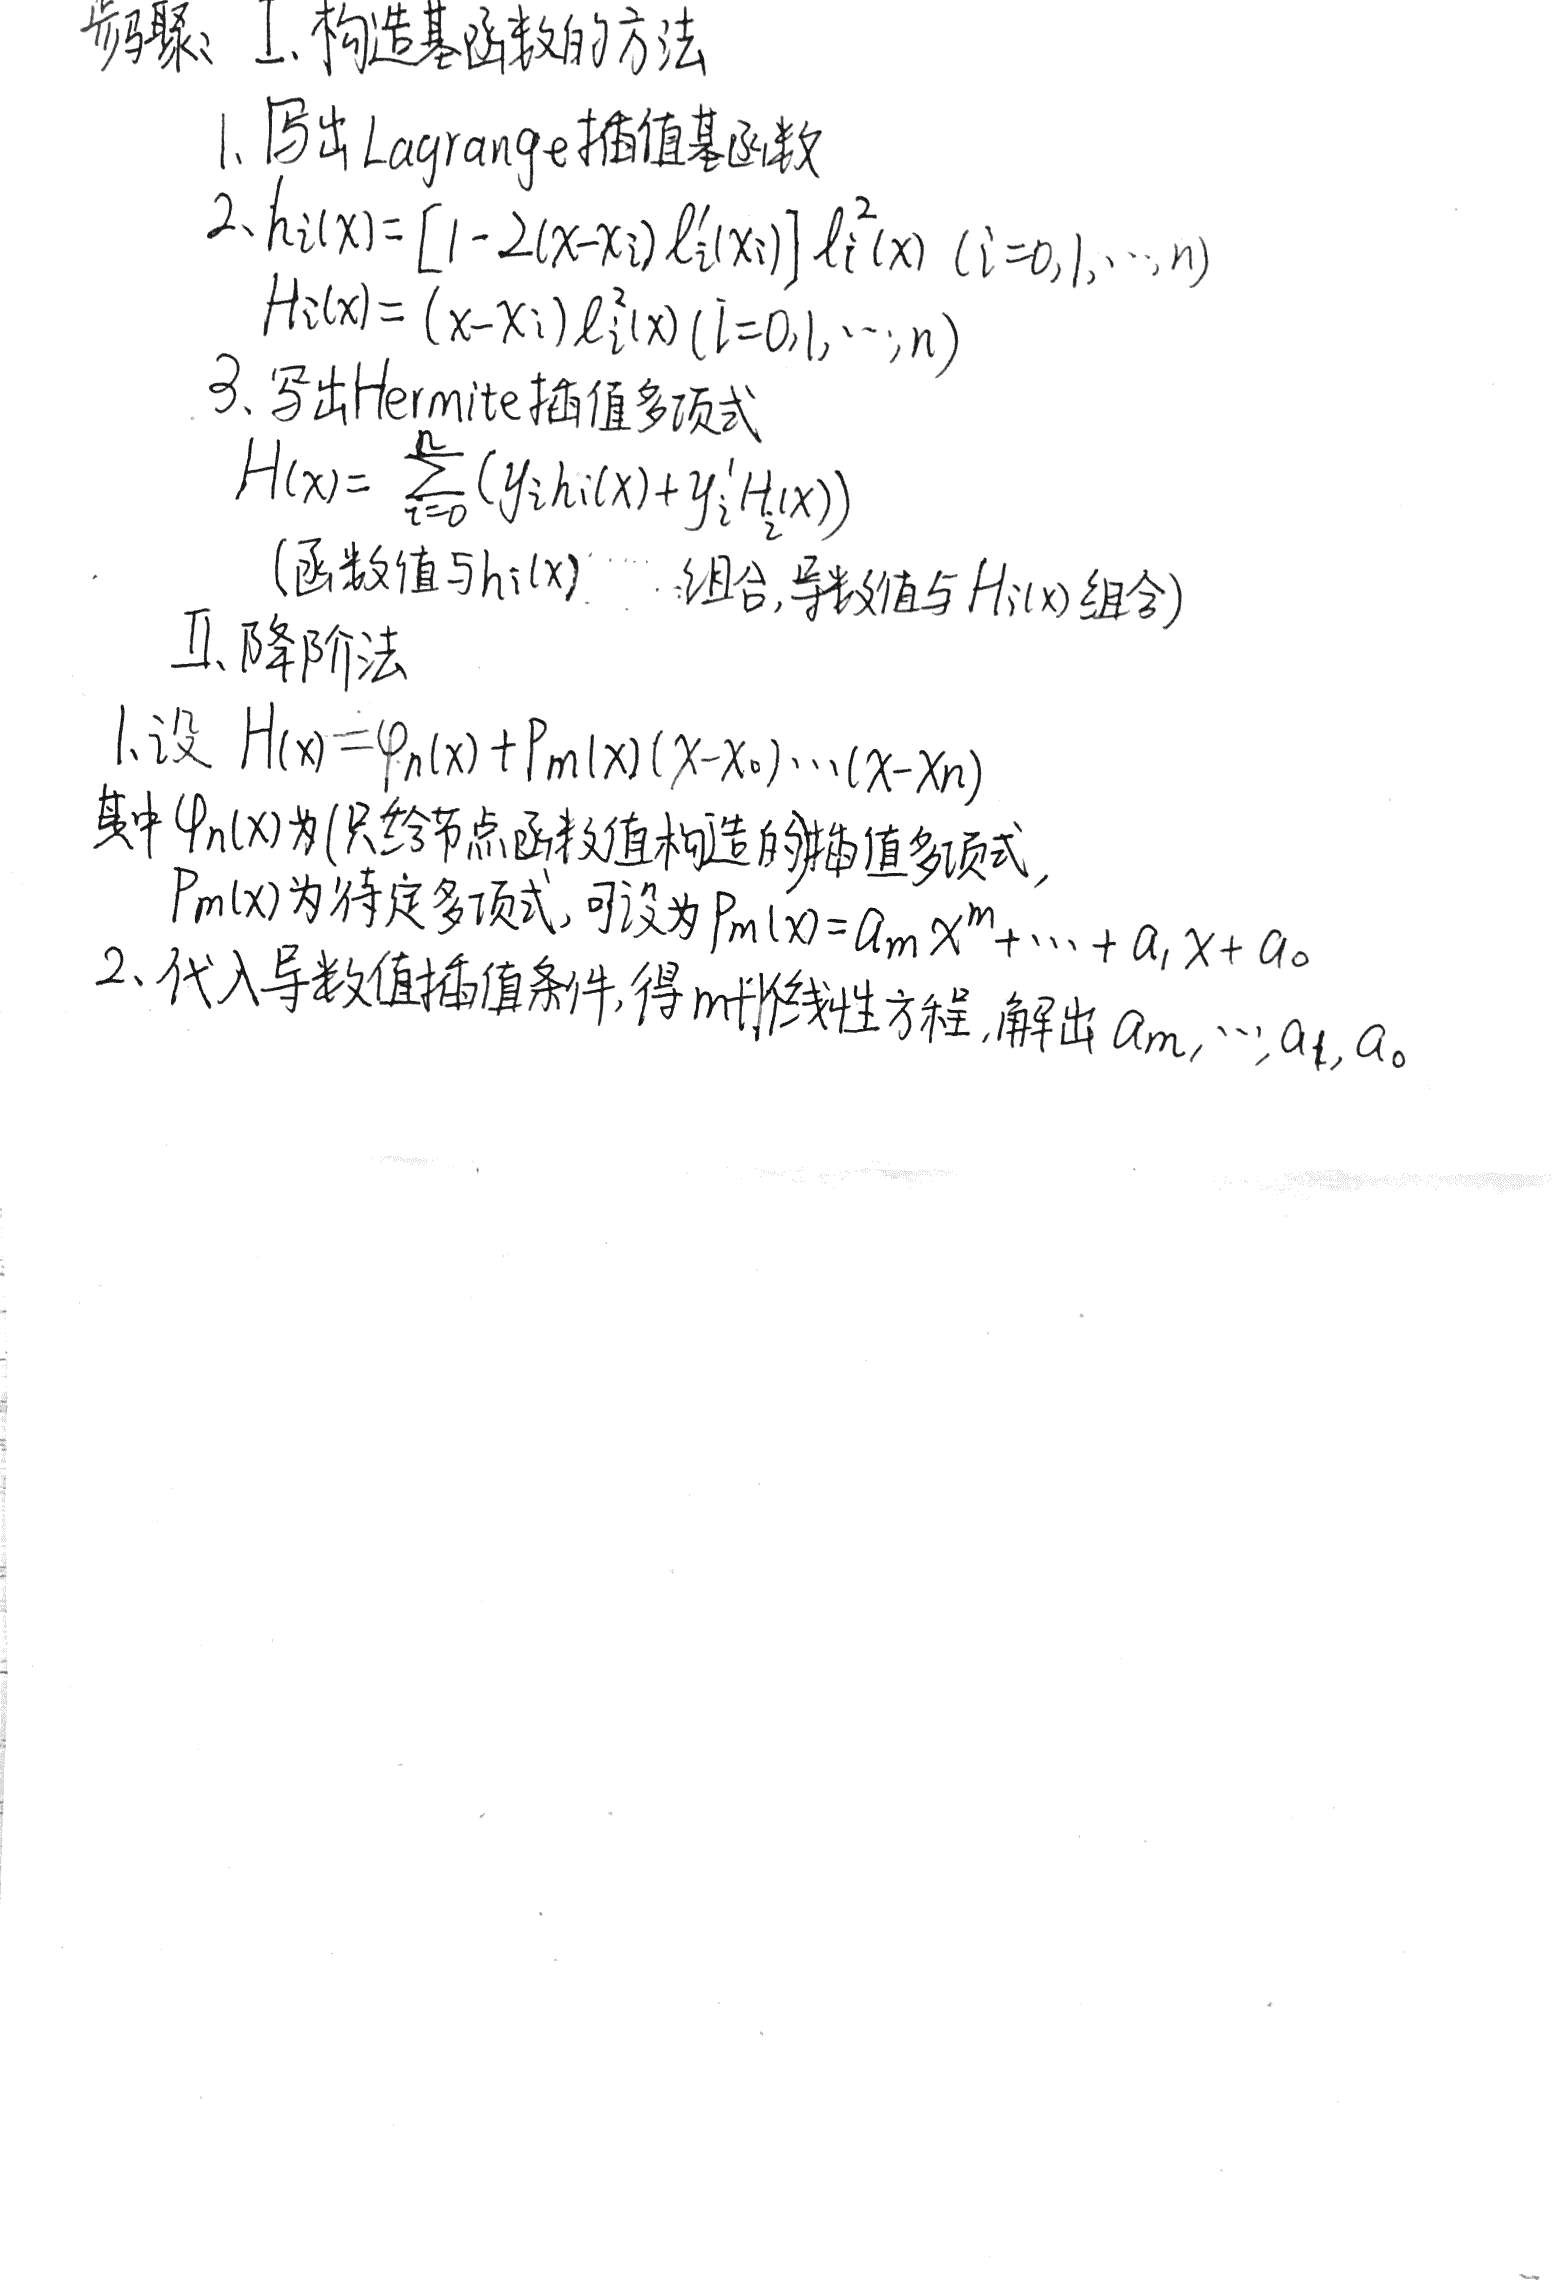 步骤: I、构造基函数的方法
1、写出Lagrange插值基函数
2、hᵢ(x)=[1-2(x-xᵢ)lᵢ'(xᵢ)]lᵢ²(x) (i=0,1,…,n)
Hᵢ(x)=(x-xᵢ)lᵢ²(x)(i=0,1,…,n)
3、写出Hermite插值多项式
H(x)=∑ⁿᵢ₌₀(yᵢhᵢ(x)+yᵢ'Hᵢ(x))
(函数值与hᵢ(x)……组合,导数值与Hᵢ(x)组合)
II、降阶法
1、设 H(x)=φₙ(x)+Pₘ(x)(x-x₀)…(x-xₙ)
其中φₙ(x)为(只给节点函数值构造的)插值多项式,
Pₘ(x)为待定多项式,可设为Pₘ(x)=aₘxᵐ+…+a₁x+a₀
2、代入导数值插值条件,得m+1个线性方程,解出aₘ,…,a₁,a₀